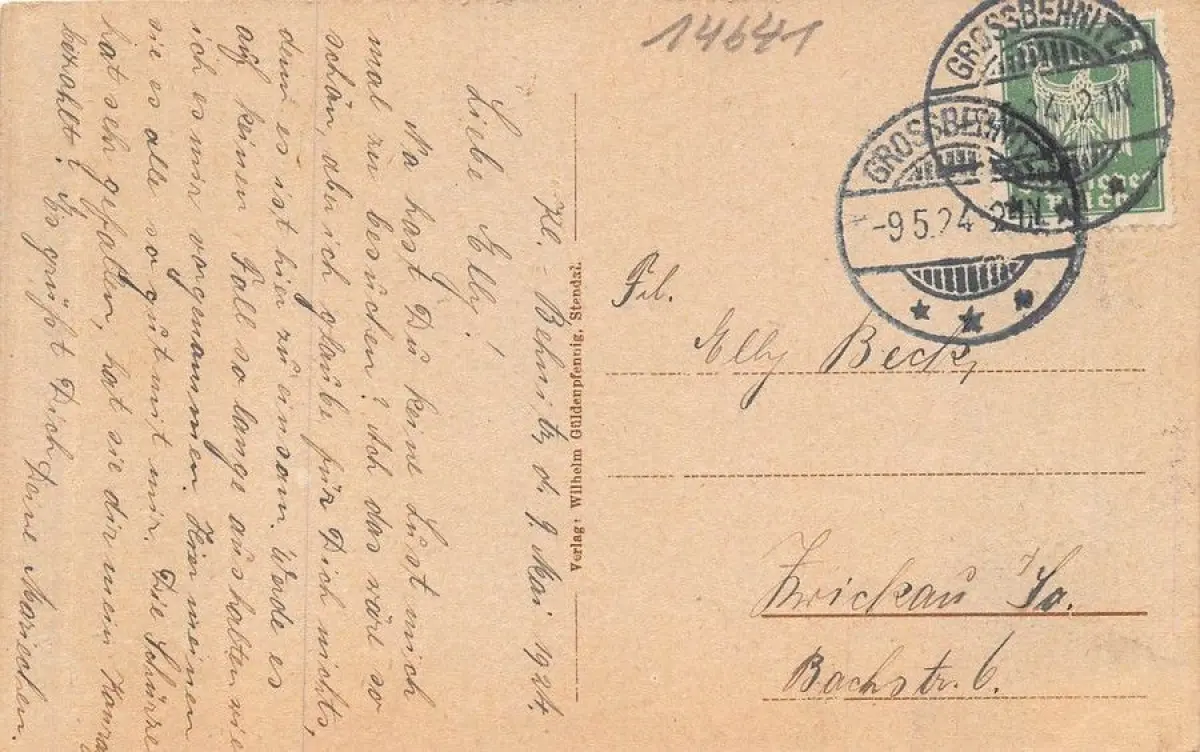 14641
GROSSBEHNITZ
GROSSBEHNITZ
-9.5.24
Kl.-Behnitz, d. 9. Mai 1924.
Liebe Elly!
Na hast Du keine Lust mich
mal zu besuchen? Ach das wär so
schön, aber ich glaube für Dich nichts,
denn es ist hier zu einsam. Werde es
auf keinen Fall so lange aushalten wie
ich es mir vorgenommen. Hier meinen
sie es alle so gut mit mir. Die Schürze
hat sehr gefallen, hat sie dir mein
bezahlt? Es grüßt Dich Deine Mariechen.
Verlag: Wilhelm Güldenpfennig, Stendal.
Frl.
Elly Beck,
Zwickau i/Sa.
Bachstr. 6.